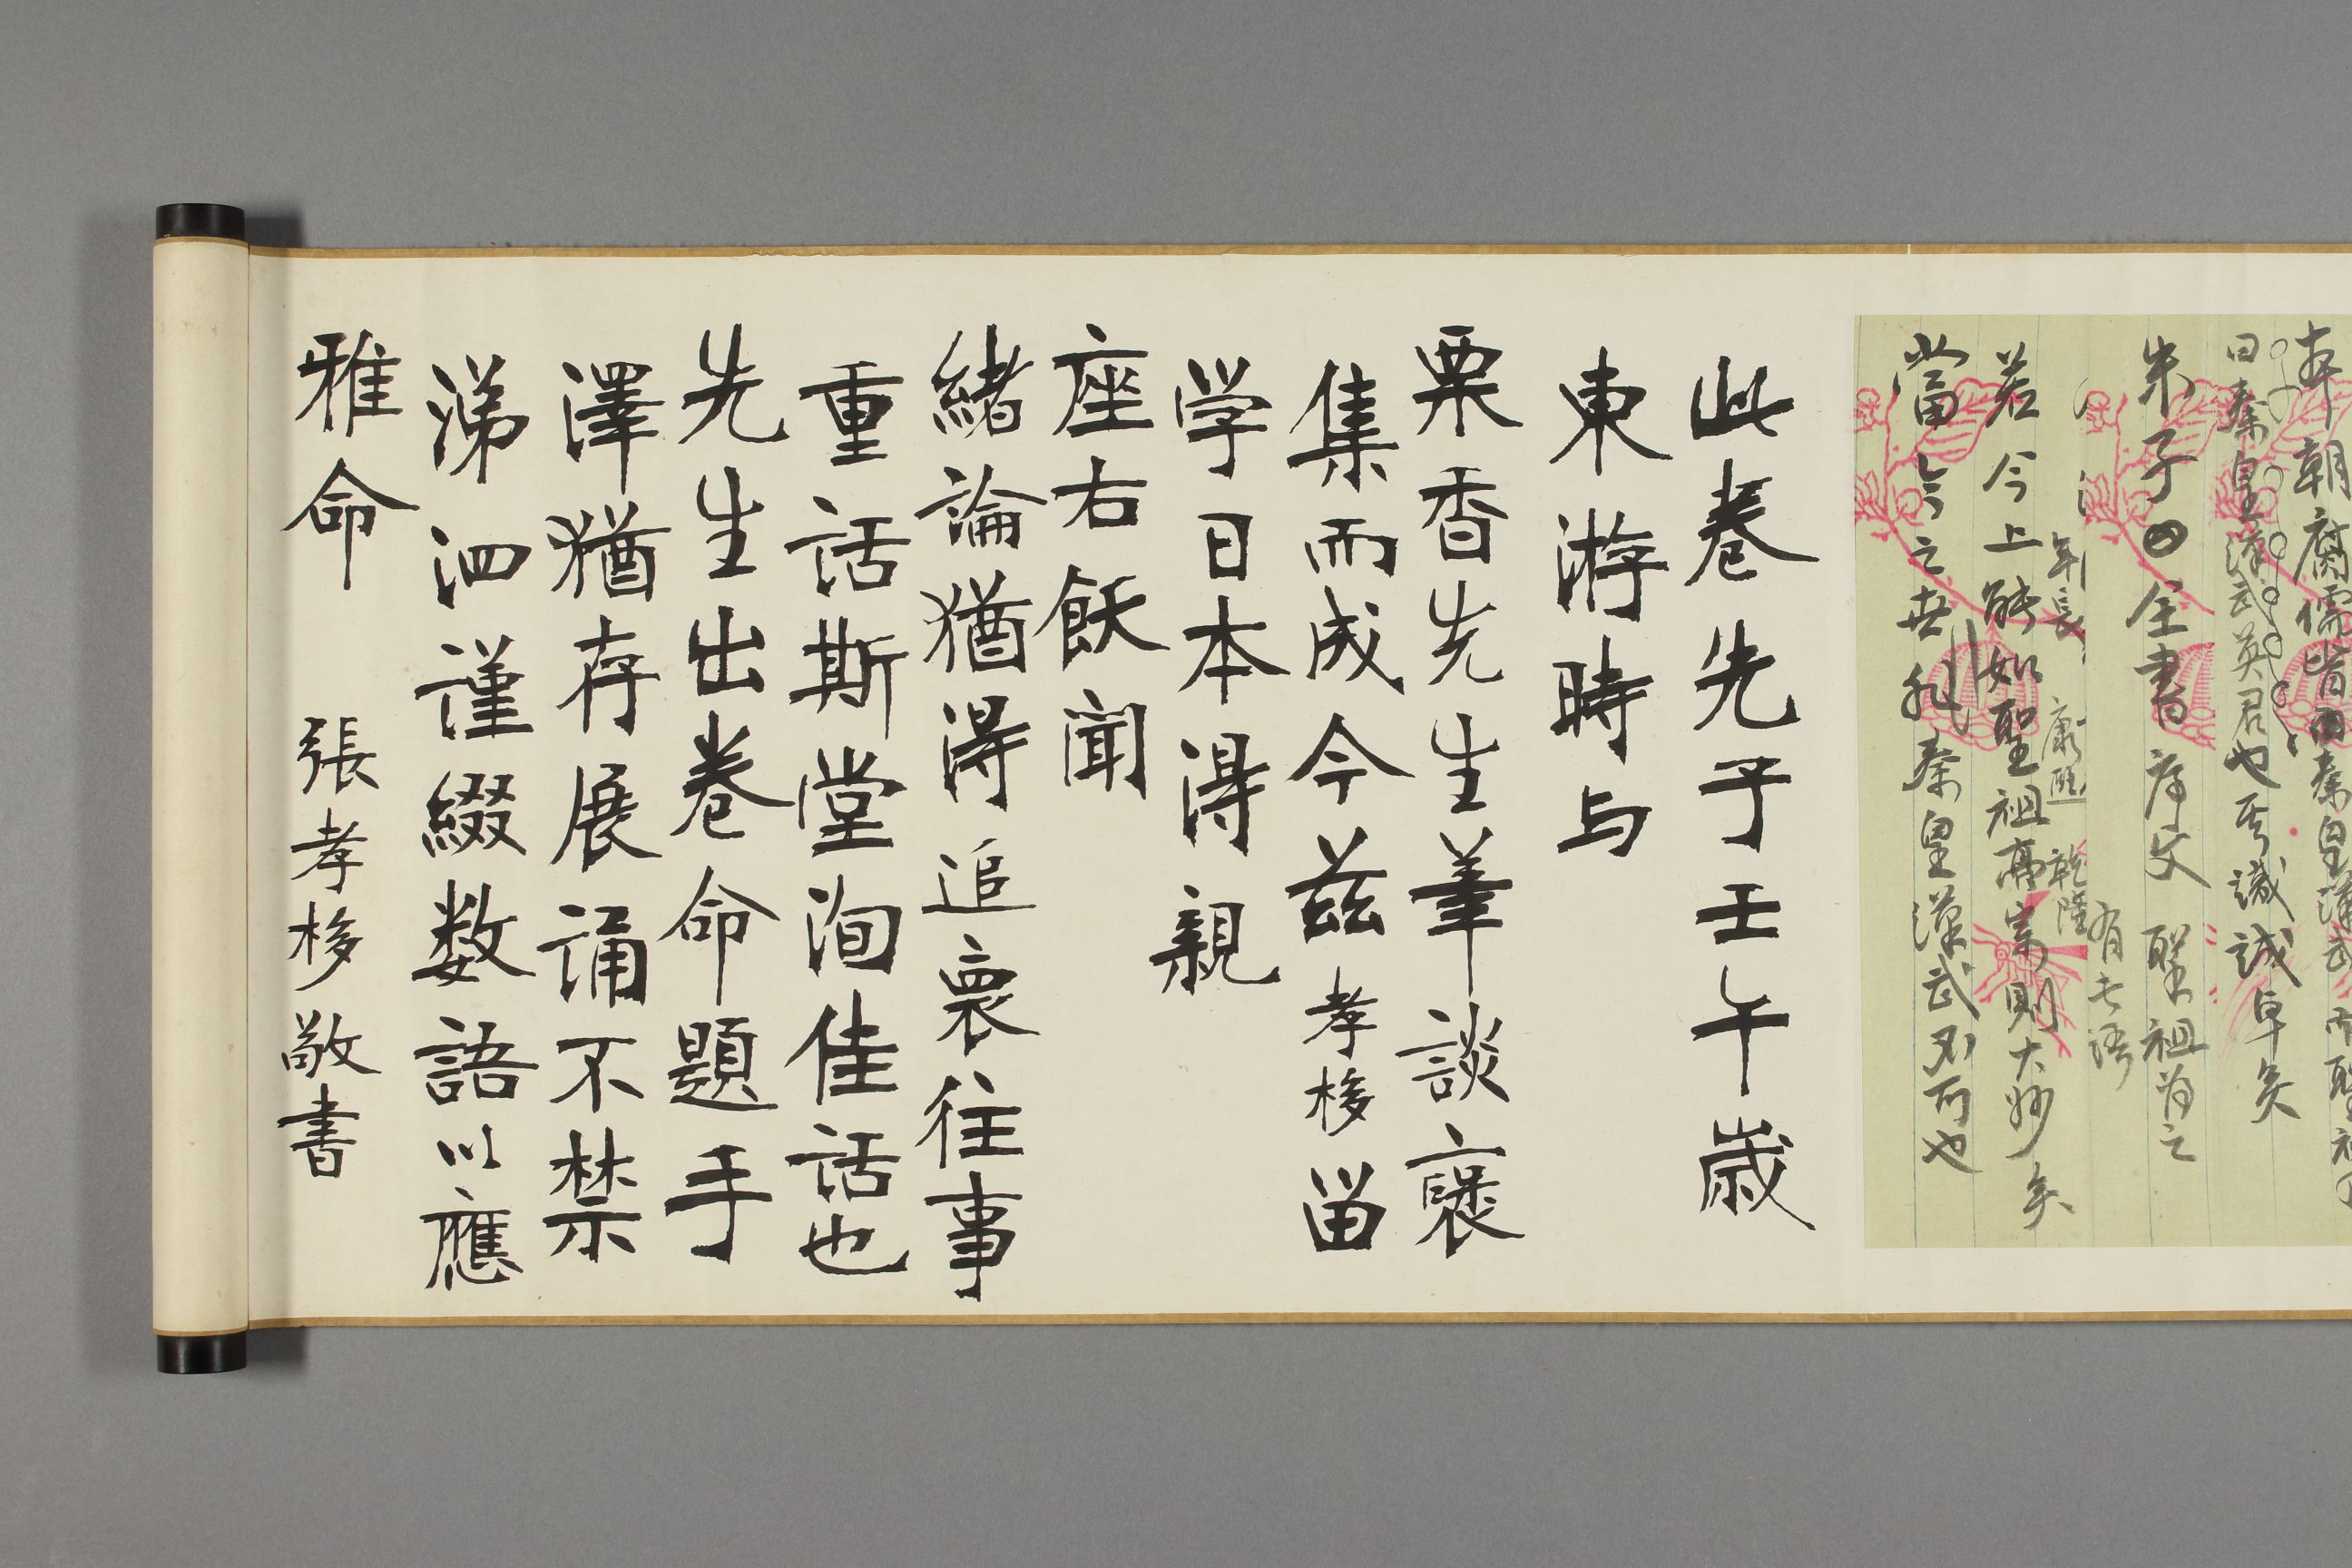 本朝腐儒皆曰秦皇漢武而聖祖
曰秦皇漢武英君也其識誠卓矣
朱子曰全書序文聖祖為之
有古語
年長康熙乾隆
若今上能如聖祖高宗則大妙矣
當今之世非秦皇漢武不可也
此卷先子壬午歲
東游時与
栗香先生筆談裒
集而成今茲孝栘留
学日本得親
座右飫聞
緒論猶得追褱往事
重話斯堂洵佳話也
先生出卷命題手
澤猶存展誦不禁
涕泗謹綴数語以應
雅命　張孝栘敬書